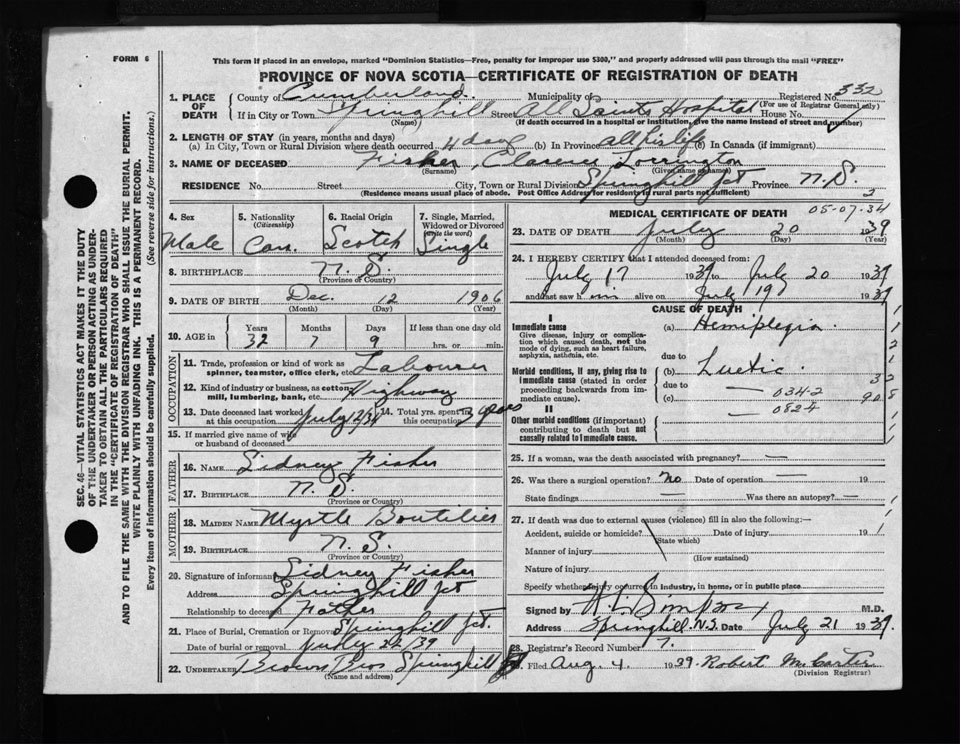 FORM 6
This form if placed in an envelope, marked "Dominion Statistics—Free, penalty for improper use $300," and properly addressed will pass through the mail "FREE"
PROVINCE OF NOVA SCOTIA—CERTIFICATE OF REGISTRATION OF DEATH
1. PLACE OF DEATH County of Cumberland Municipality of Registered No. 332
(For use of Registrar General only)
If in City or Town Springhill Street All Saints Hospital House No.
(Name) (If death occurred in a hospital or institution, give the name instead of street and number)
2. LENGTH OF STAY (in years, months and days)
(a) In City, Town or Rural Division where death occurred 4 days (b) In Province all his life (c) In Canada (if immigrant)
3. NAME OF DECEASED Fisher, Clarence Torrington
(Surname) (Given name or names)
RESIDENCE No. Street City, Town or Rural Division Springhill Jct Province N.S.
(Residence means usual place of abode. Post Office Address for residents in rural parts not sufficient)
4. Sex Male
5. Nationality (Citizenship) Can.
6. Racial Origin Scotch
7. Single, Married, Widowed or Divorced (write the word) Single
8. BIRTHPLACE N.S.
(Province or Country)
9. DATE OF BIRTH Dec. 12 1906
(Month) (Day) (Year)
10. AGE in Years 32 Months 7 Days 9 If less than one day old hrs. or min.
OCCUPATION
11. Trade, profession or kind of work as spinner, teamster, office clerk, etc. Labourer
12. Kind of industry or business, as cotton mill, lumbering, bank, etc. Highway
13. Date deceased last worked at this occupation July 12/39 14. Total yrs. spent in this occupation
15. If married give name of wife or husband of deceased
FATHER
16. NAME Sidney Fisher
17. BIRTHPLACE N.S.
(Province or Country)
MOTHER
18. MAIDEN NAME Myrtle Boutilier
19. BIRTHPLACE N.S.
(Province or Country)
20. Signature of informant Sidney Fisher
Address Springhill Jct
Relationship to deceased Father
21. Place of Burial, Cremation or Removal Springhill Jct.
Date of burial or removal July 22/39
22. UNDERTAKER Brown Bros Springhill
(Name and address)
MEDICAL CERTIFICATE OF DEATH 05-07-34
23. DATE OF DEATH July 20 1939
(Month) (Day) (Year)
24. I HEREBY CERTIFY that I attended deceased from:
July 17 1939 to July 20 1939
and last saw him alive on July 19 1939
CAUSE OF DEATH
I
Immediate cause
Give disease, injury or complication which caused death, not the mode of dying, such as heart failure, asphyxia, asthenia, etc.
(a) Hemiplegia
due to
Morbid conditions, if any, giving rise to immediate cause (stated in order proceeding backwards from immediate cause).
(b) Luetic
due to
(c) 0342
0824
II
Other morbid conditions (if important) contributing to death but not causally related to immediate cause.
25. If a woman, was the death associated with pregnancy? —
26. Was there a surgical operation? no Date of operation — 19
State findings — Was there an autopsy? —
27. If death was due to external causes (violence) fill in also the following:—
Accident, suicide or homicide? Date of injury 19
(State which)
Manner of injury
(How sustained)
Nature of injury
Specify whether injury occurred in industry, in home, or in public place
Signed by Simpson M.D.
Address Springhill. N.S. Date July 21 1939.
28. Registrar's Record Number 7.
Filed Aug 4 1939 Robert McCarter
(Division Registrar)
SEC. 46—VITAL STATISTICS ACT MAKES IT THE DUTY
OF THE UNDERTAKER OR PERSON ACTING AS UNDER-
TAKER TO OBTAIN ALL THE PARTICULARS REQUIRED
IN THE "CERTIFICATE OF REGISTRATION OF DEATH"
AND TO FILE THE SAME WITH THE DIVISION REGISTRAR WHO SHALL ISSUE THE BURIAL PERMIT.
WRITE PLAINLY WITH UNFADING INK. THIS IS A PERMANENT RECORD.
Every item of information should be carefully supplied. (See reverse side for instructions.)